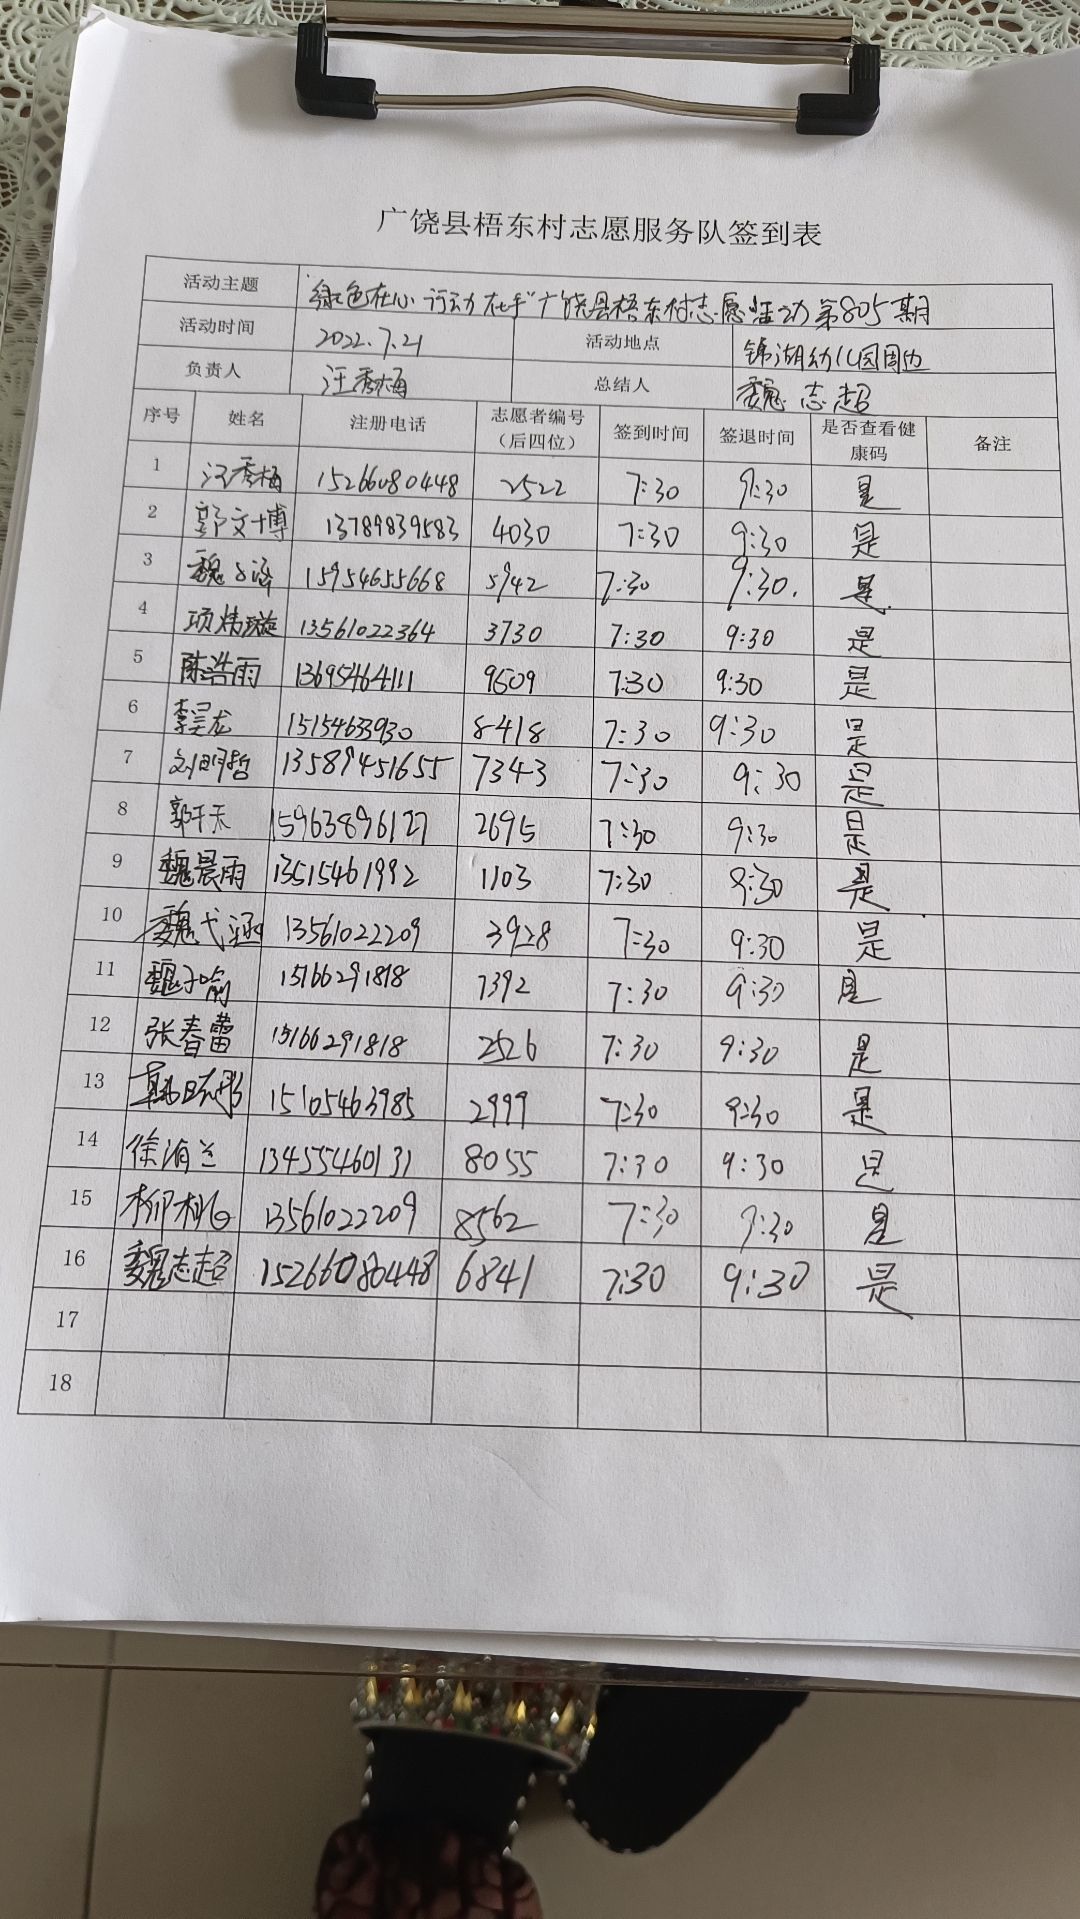 广饶县梧东村志愿服务队签到表
活动主题 "绿色在心 行动在手"广饶县梧东村志愿活动第805期
活动时间 2022.7.21 活动地点 锦湖幼儿园周边
负责人 汪秀梅 总结人 魏志超
序号 姓名 注册电话 志愿者编号（后四位） 签到时间 签退时间 是否查看健康码 备注
1 汪秀梅 15266080448 2522 7:30 9:30 是
2 郭文博 13789839583 4030 7:30 9:30 是
3 魏 15954655668 5942 7:30 9:30. 是
4 项炜璇 13561022364 3730 7:30 9:30 是
5 陈浩雨 13695464111 9509 7:30 9:30 是
6 李昊龙 15154633930 8418 7:30 9:30 是
7 刘明哲 13589451655 7343 7:30 9:30 是
8 郭千天 15963896127 2695 7:30 9:30 是
9 魏晨雨 13515461992 1103 7:30 9:30 是
10 魏弋涵 13561022209 3928 7:30 9:30 是
11 魏子喻 15166291818 7392 7:30 9:30 是
12 张春蕾 15166291818 2526 7:30 9:30 是
13 韩 15105463985 2999 7:30 9:30 是
14 徐海兰 13455460131 8055 7:30 9:30 是
15 柳 13561022209 8562 7:30 9:30 是
16 魏志超 15266080448 6841 7:30 9:30 是
17
18